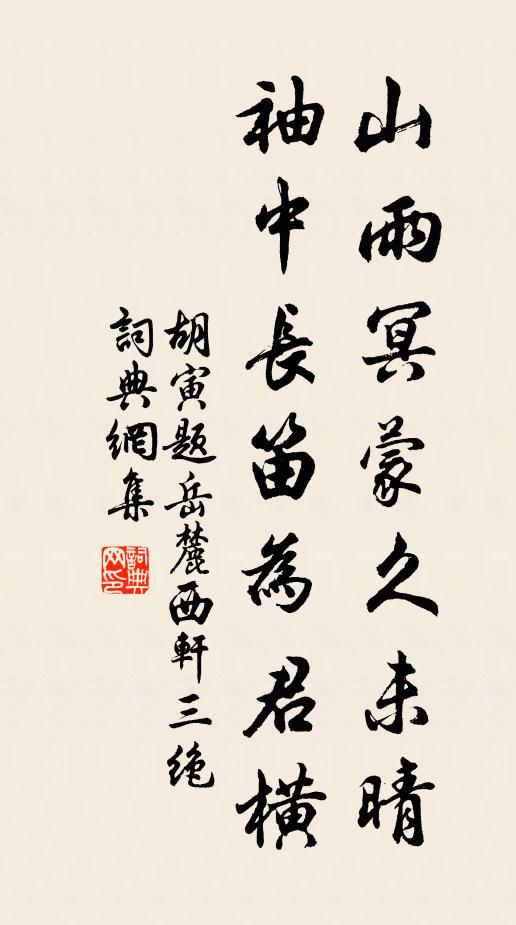 山雨冥蒙久未晴
袖中長笛為君橫
胡寅題岳麓西軒三绝
詞典網集
詞典
网印